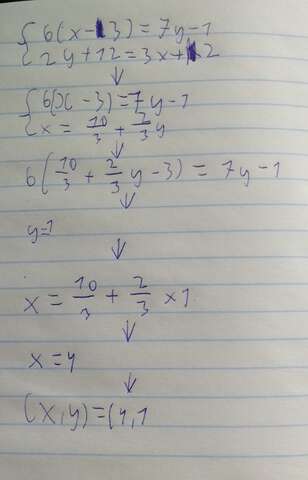 6(x-3)=7y-1
2y+12=3x+2
↓
6(x-3)=7y-1
x = 10/3 + 2/3 y
↓
6(10/3 + 2/3 y - 3) = 7y-1
↓
y=1
↓
x = 10/3 + 2/3 ×1
↓
x = 4
↓
(x,y)=(4,1